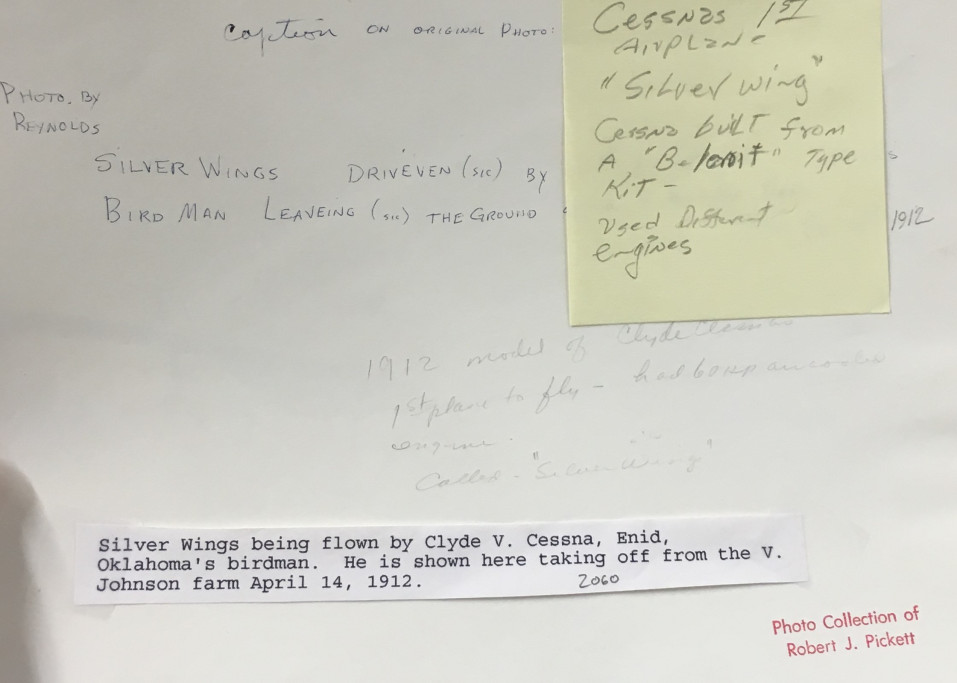 Caption ON ORIGINAL PHOTO:
PHOTO. BY
REYNOLDS
SILVER WINGS DRIVEVEN (sic) BY
BIRD MAN LEAVEING (sic) THE GROUND
1912
Cessnas 1st
Airplane
"Silver wing"
Cessna built from
A Type
Kit-
Used Different
engines
1912 model of Clyde Cessnas
1st plane to fly - had 60 HP
engine.
Called - "Silver Wing"
Silver Wings being flown by Clyde V. Cessna, Enid,
Oklahoma's birdman. He is shown here taking off from the V.
Johnson farm April 14, 1912.
2060
Photo Collection of
Robert J. Pickett